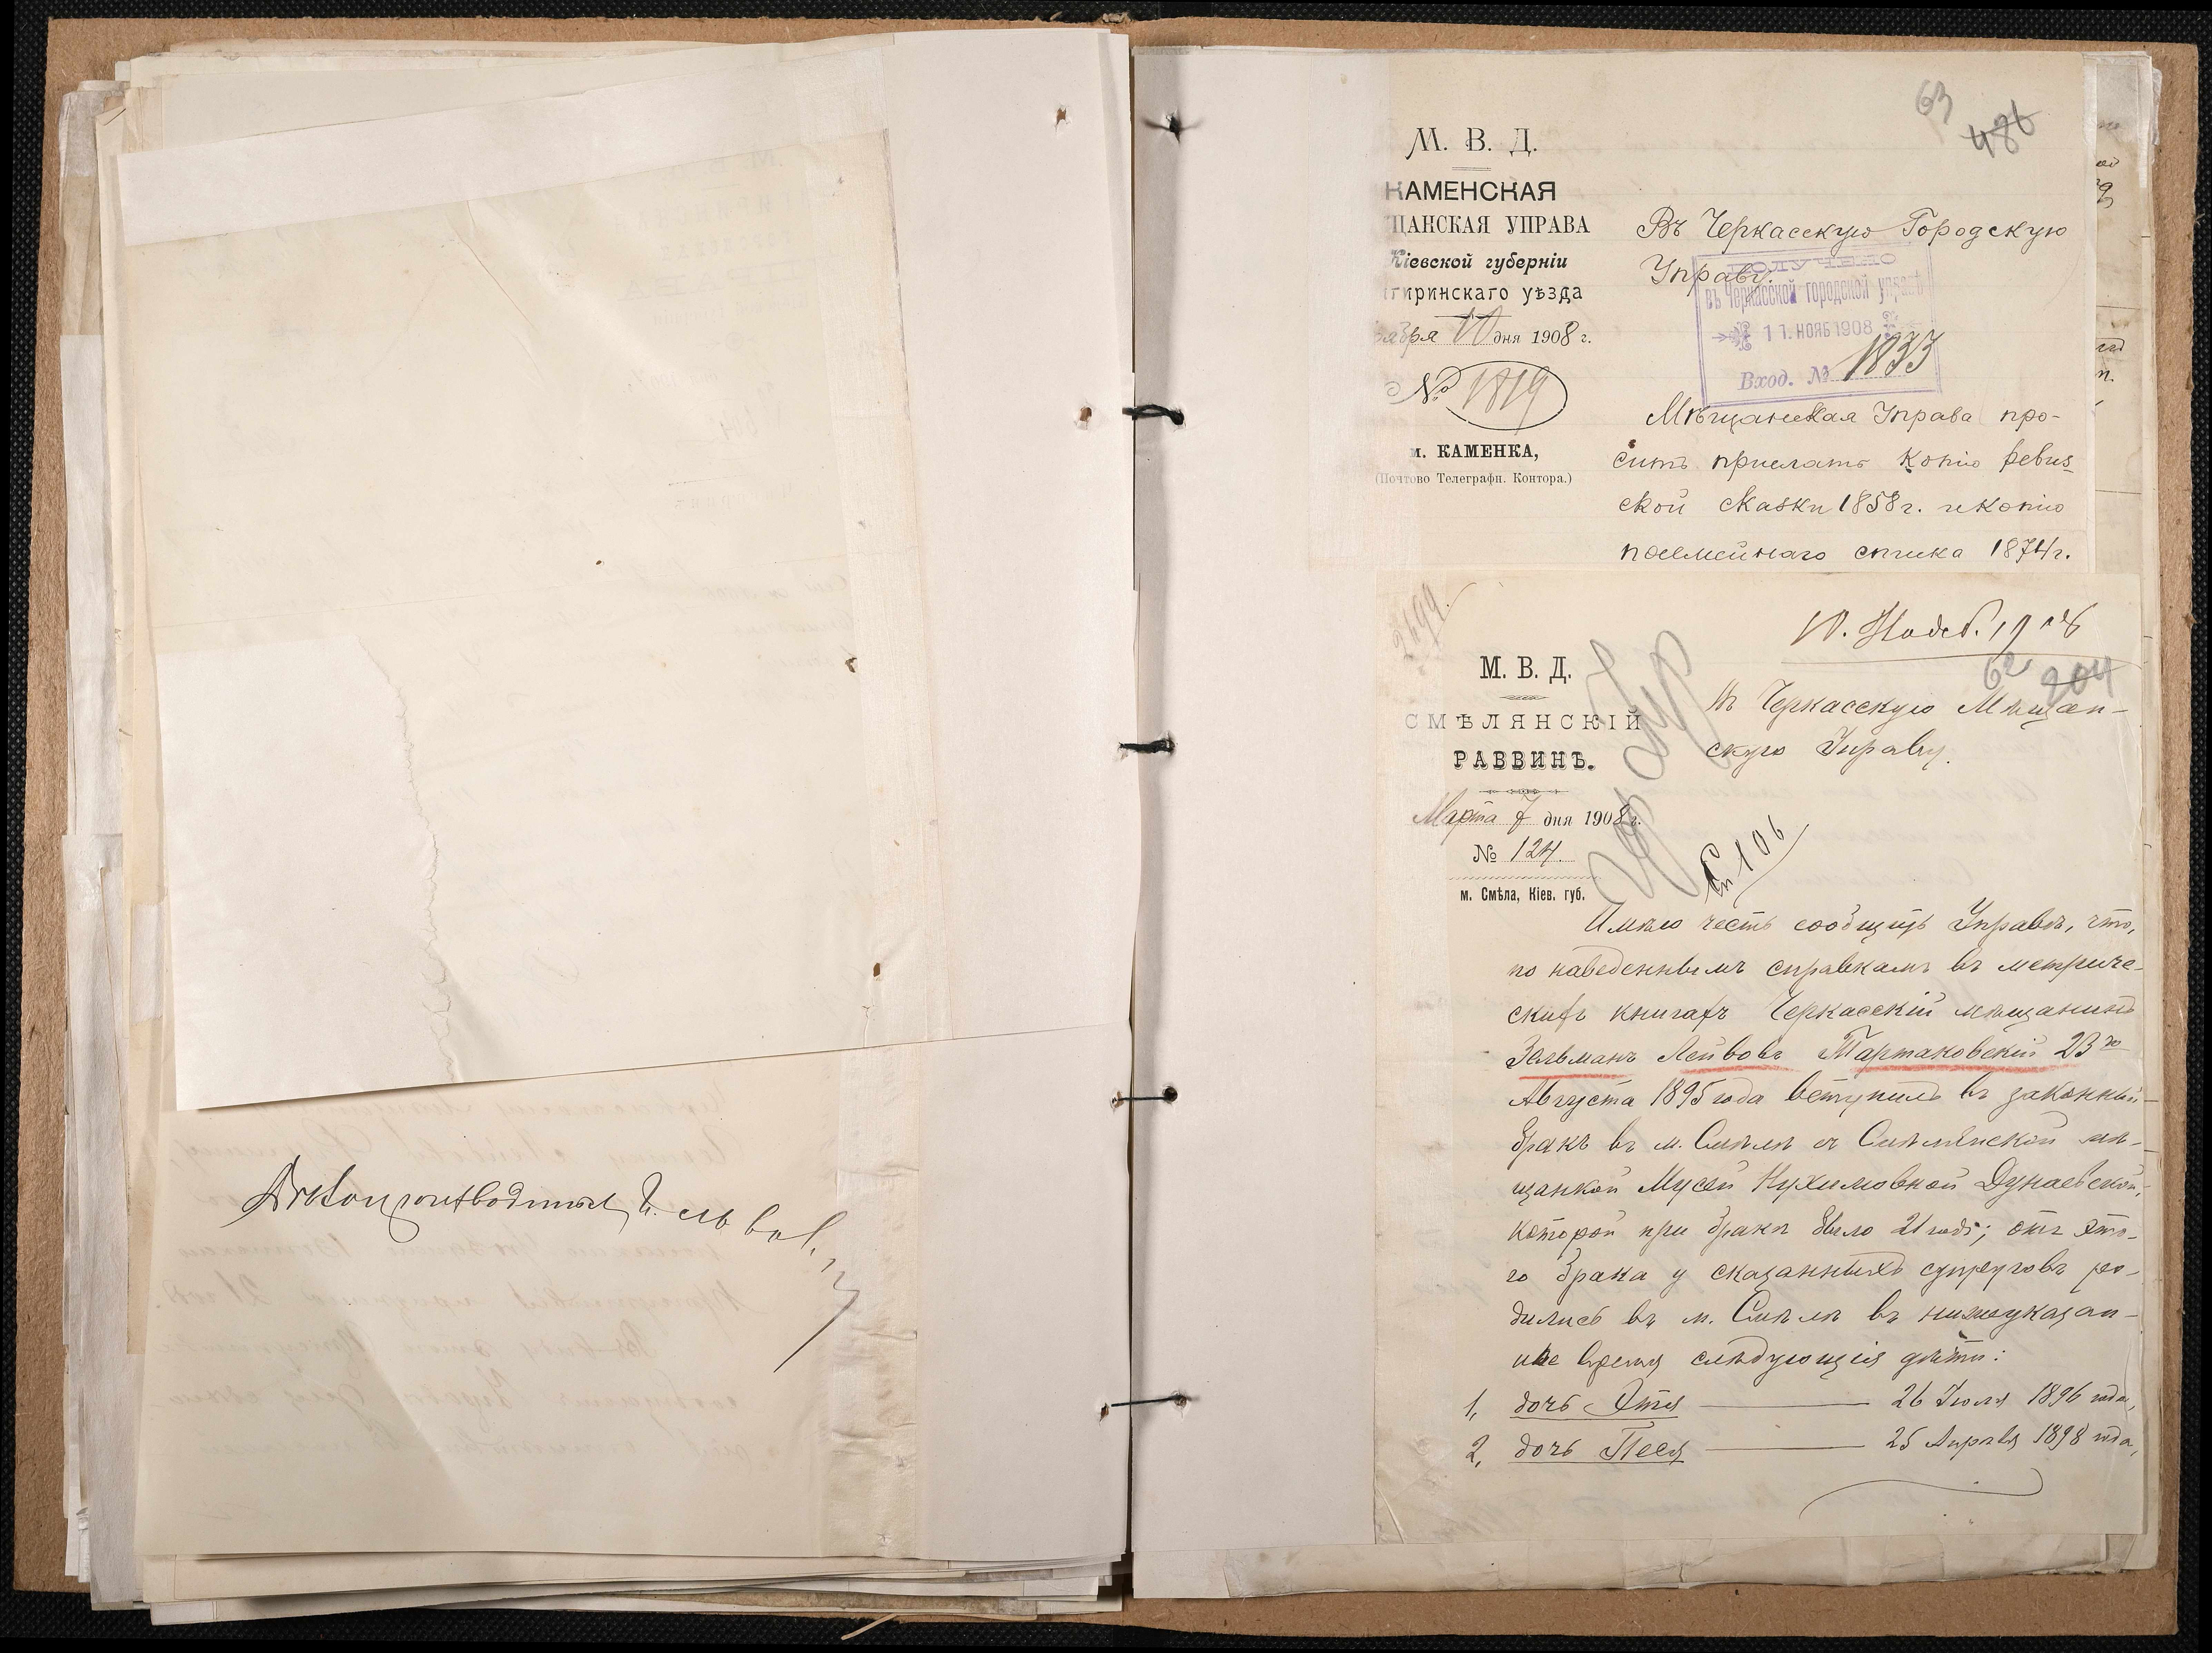 63
486
М. В. Д.
КАМЕНСКАЯ
ЩАНСКАЯ УПРАВА
Кіевской губерніи
гиринскаго уѣзда
ября 10 дня 1908 г.
№ 1819
м. КАМЕНКА,
(Почтово Телеграфн. Контора.)
Въ Черкасскую Городскую
Управу.
ПОЛУЧЕНО
въ Черкасской городской управѣ
11. НОЯБ 1908
Вход. № 1833
Мѣщанская Управа про-
ситъ прислать копію ревиз
ской сказки 1858 г. и копію
посемейнаго списка 1874 г.
2699
62
204
М. В. Д.
СМѢЛЯНСКІЙ
РАВВИНЪ.
Марта 7 дня 1908 г.
№ 124.
м. Смѣла, Кіев. губ.
Въ Черкасскую Мѣщан-
скую Управу.
106
Имѣю честь сообщить Управѣ, что,
по наведеннымъ справкамъ въ метриче-
скихъ книгахъ Черкасскій мѣщанинъ
Зельманъ Лейбовъ Тартаковскій 23го
Августа 1895 года вступилъ въ законный
бракъ въ м. Смѣлѣ съ Смѣлянской мѣ-
щанкой Мусей Нухимовной Дунаевской,
которой при бракѣ было 21 годъ; отъ это-
го брака у сказанныхъ супруговъ ро-
дились въ м. Смѣлѣ въ нижеуказан-
ное время слѣдующія дѣти:
1, дочь Этя — 26 Іюля 1896 года,
2, дочь Песя — 25 Апрѣля 1898 года,